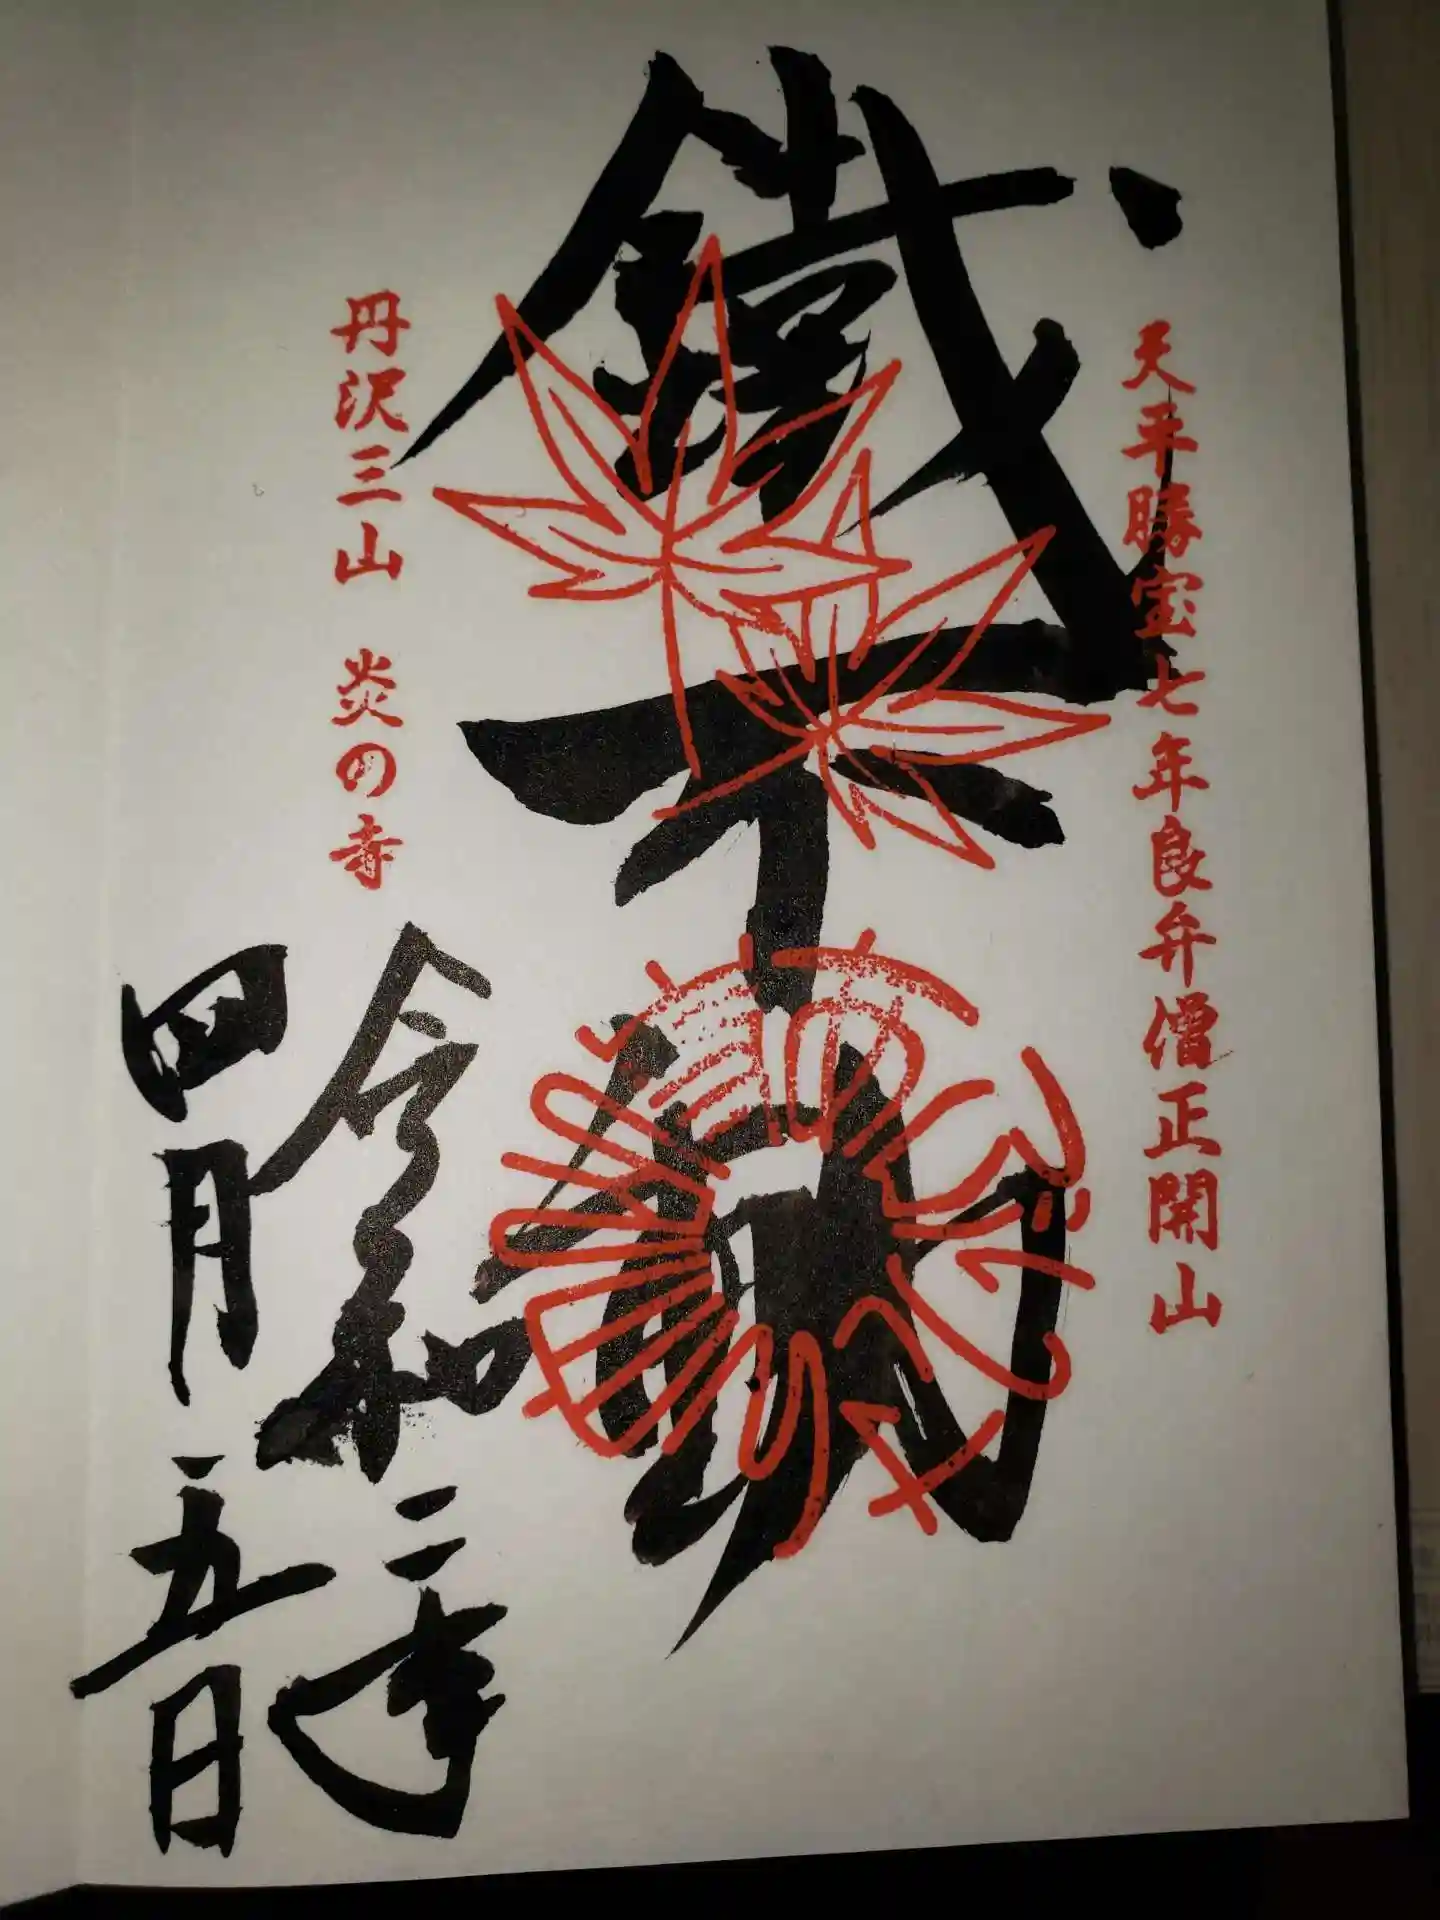 天平勝宝七年良弁僧正開山
鐵不動
丹沢三山 炎の寺
令和二年
四月五日